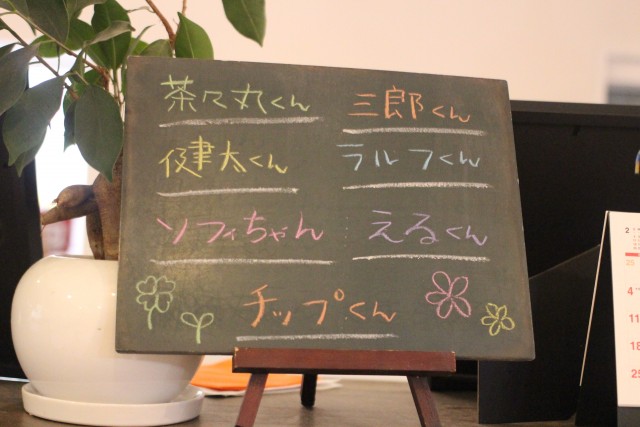 茶々丸くん 三郎くん
健太くん ラルフくん
ソフィちゃん えるくん
チップくん
2
4
11
18
25